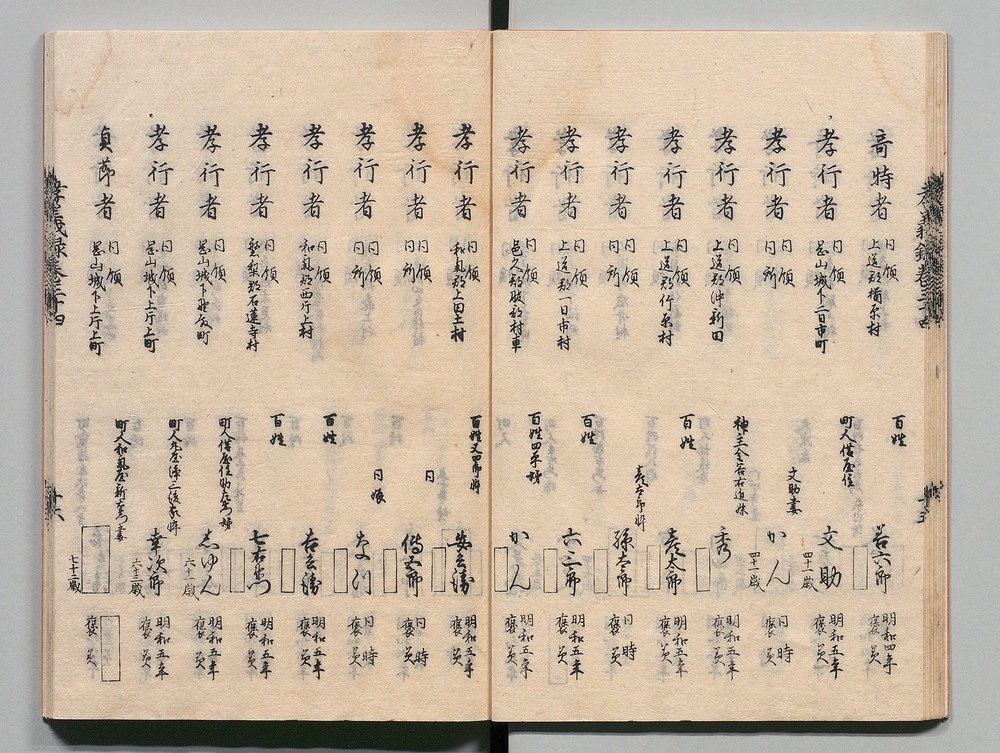 奇特者 同領 上道郡 村 百姓 若六郎 明和四年 褒美
孝行者 同領 岡山城下二日市町 町人借屋住 文助 四十一歳 明和五年 褒美
孝行者 同領 同所 文助妻 かん 四十一歳 同時 褒美
孝行者 同領 上道郡沖新田 神主金谷右近妹 秀 明和五年 褒美
孝行者 同領 上道郡竹原村 百姓 彦太郎 明和五年 褒美
孝行者 同領 同所 彦太郎忰 孫太郎 同時 褒美
孝行者 同領 上道郡一日市村 百姓 六三郎 明和五年 褒美
孝行者 同領 邑久郡 村 百姓四平 かん 明和五年 褒美
孝行者 同領 和気郡上田土村 百姓又四郎忰 安兵衛 明和五年 褒美
孝行者 同領 同所 同 傳五郎 同時 褒美
孝行者 同領 同所 同娘 なつ 同時 褒美
孝行者 同領 和気郡西片上村 百姓 吉兵衛 明和五年 褒美
孝行者 同領 磐梨郡石蓮寺村 百姓 七右衛門 明和五年 褒美
孝行者 同領 岡山城下野殿町 町人借屋住 しゆん 六十一歳 明和五年 褒美
孝行者 同領 岡山城下上片上町 町人丸屋 忰 幸次郎 六十三歳 明和五年 褒美
貞節 同領 岡山城下上片上町 町人和気屋新右衛門妻 七十三歳 褒美
孝義録巻三十四